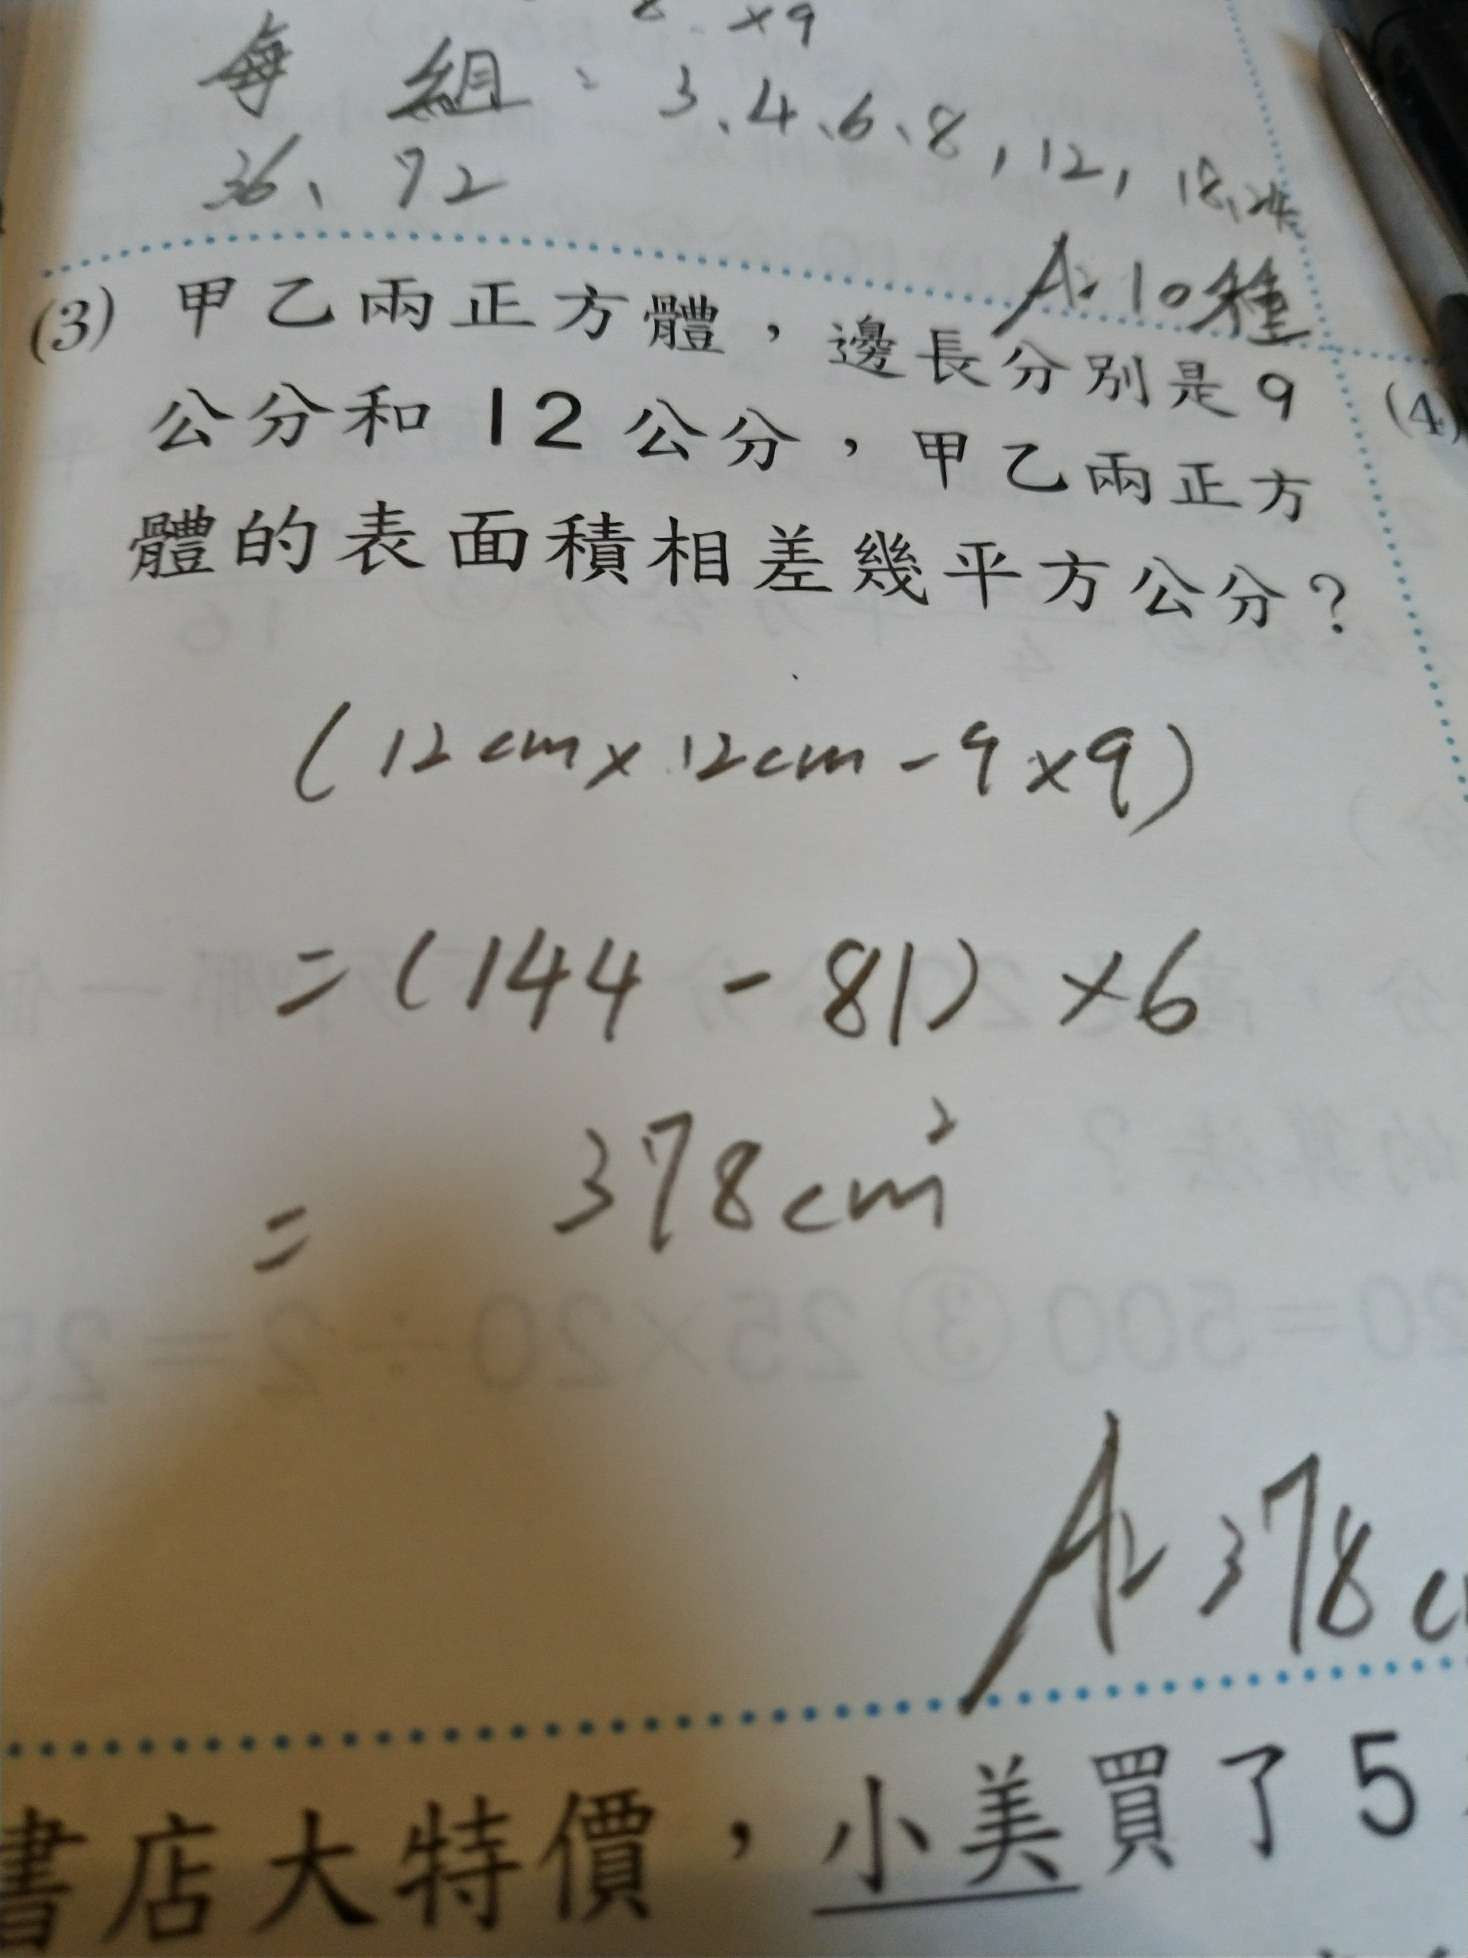 ×9
每 組：3、4、6、8，12，18、24、
36、72
A：10種
(3) 甲乙兩正方體，邊長分別是9
公分和12公分，甲乙兩正方
體的表面積相差幾平方公分？
(4)
(12cm×12cm-9×9)
=(144-81)×6
= 378cm²
A：378c
書店大特價，小美買了5